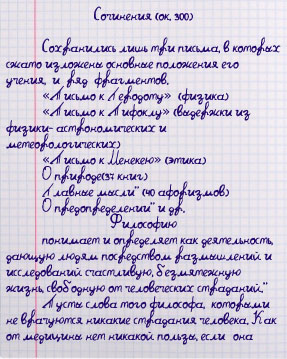 Сочинения (ок. 300)
Сохранились лишь три письма, в которых
сжато изложены основные положения его
учения, и ряд фрагментов.
«Письмо к Геродоту» (физика)
«Письмо к Пифоклу» (выдержки из
физики- астрономических и
метеорологических)
«Письмо к Менекею» (этика)
О природе(37 книг)
Главные мысли" (40 афоризмов)
О предопределении" и др.
Философию
понимает и определяет как деятельность,
дающую людям посредством размышлений и
исследований счастливую, безмятежную
жизнь, свободную от человеческих страданий."
"Пусты слова того философа, которыми
не врачуются никакие страдания человека. Как
от медицины нет никакой пользы, если она